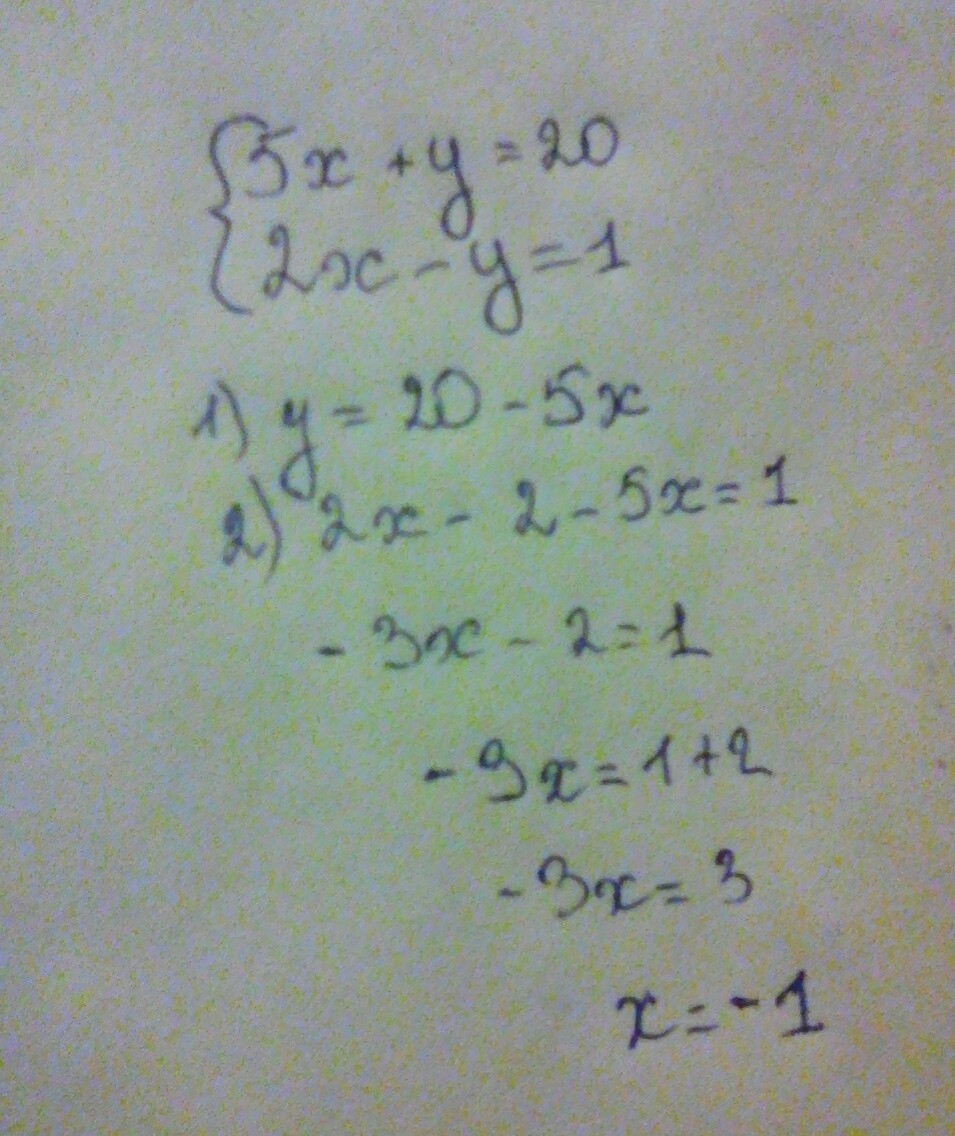 {5x + y = 20
2x - y = 1
1) y = 20 - 5x
2) 2x - 2 - 5x = 1
- 3x - 2 = 1
- 3x = 1 + 2
- 3x = 3
x = - 1